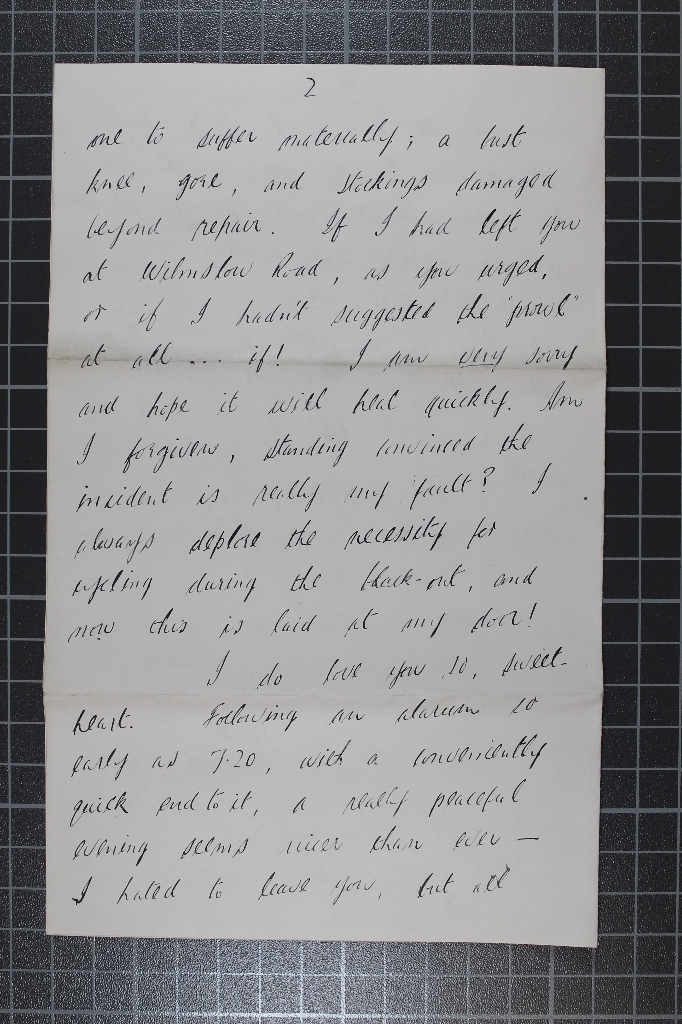 2
one to suffer materially; a bust
knee, gore, and stockings damaged
beyond repair. If I had left you
at Wilmslow Road, as you urged,
or if I hadn't suggested the "prowl"
at all ... if! I am very sorry
and hope it will heal quickly. Am
I forgiven, standing convinced the
incident is really my fault? I
always deplore the necessity for
cycling during the black-out, and
now this is laid at my door!
I do love you so, sweet-
heart. Following an alarum so
early as 7.20, with a conveniently
quick end to it, a really peaceful
evening seems nicer than ever —
I hated to leave you, but all